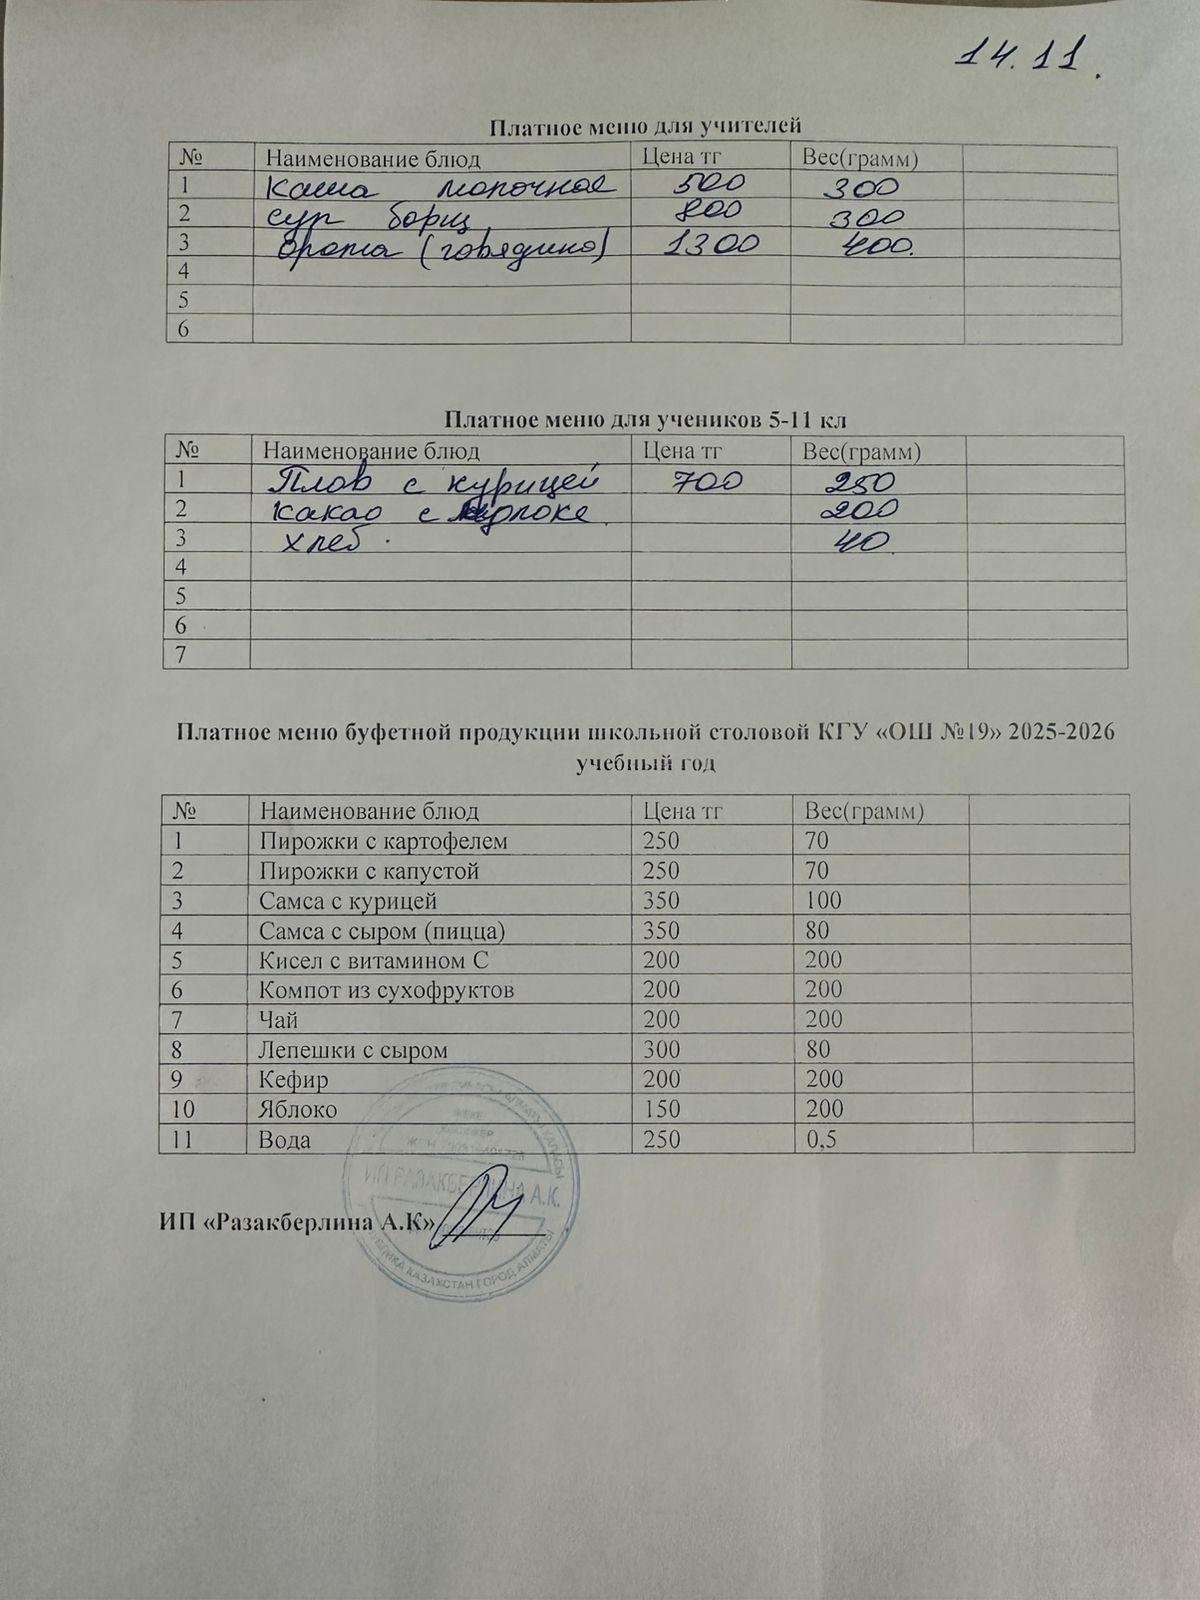 14.11.
Платное меню для учителей
№ Наименование блюд Цена тг Вес(грамм)
1 Каша молочное 500 300
2 суп борщ 800 300
3 (говядина) 1300 400.
4
5
6
Платное меню для учеников 5-11 кл
№ Наименование блюд Цена тг Вес(грамм)
1 Плов с курицей 700 250
2 какао с молоке 200
3 хлеб. 40
4
5
6
7
Платное меню буфетной продукции школьной столовой КГУ «ОШ №19» 2025-2026
учебный год
№ Наименование блюд Цена тг Вес(грамм)
1 Пирожки с картофелем 250 70
2 Пирожки с капустой 250 70
3 Самса с курицей 350 100
4 Самса с сыром (пицца) 350 80
5 Кисел с витамином С 200 200
6 Компот из сухофруктов 200 200
7 Чай 200 200
8 Лепешки с сыром 300 80
9 Кефир 200 200
10 Яблоко 150 200
11 Вода 250 0,5
ИП РАЗАКБЕРЛИНА А.К.
ИП «Разакберлина А.К»
КАЗАХСТАН ГОРОД АЛМАТЫ